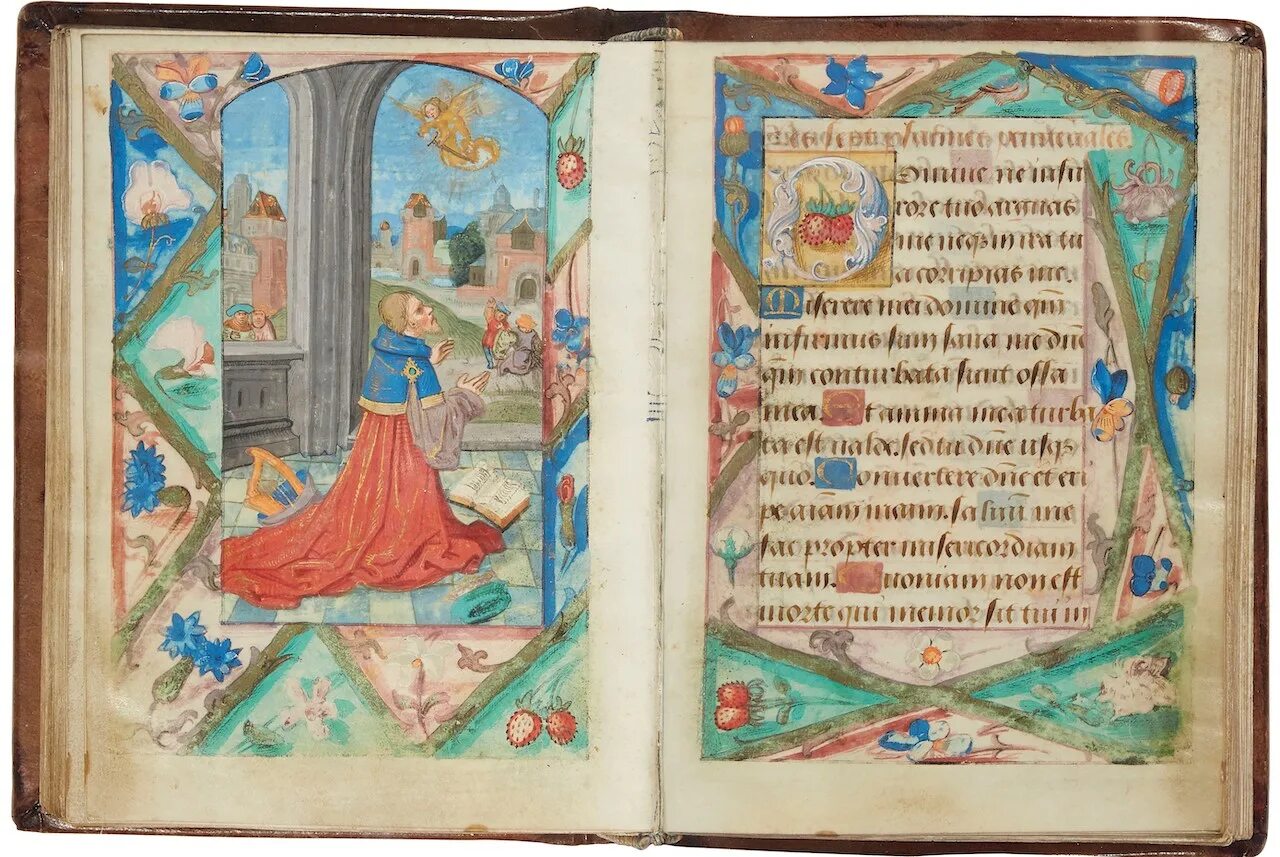 Les sept psalmes penitenciales.
Domine ne in fu
rore tuo arguas
me neqz in ira tu
a coripias me.
Miserere mei domine qm̃
infirmus sum sana me dñe
qm̃ conturbata sunt ossa
mea. Et anima mea turba
ta est valde. sed tu dñe usqz
quo. Convertere dñe et eri
pe aīam meam. salvum me
fac propter misericordiam
tuam. Quoniam non est
morte qui memor sit tui in